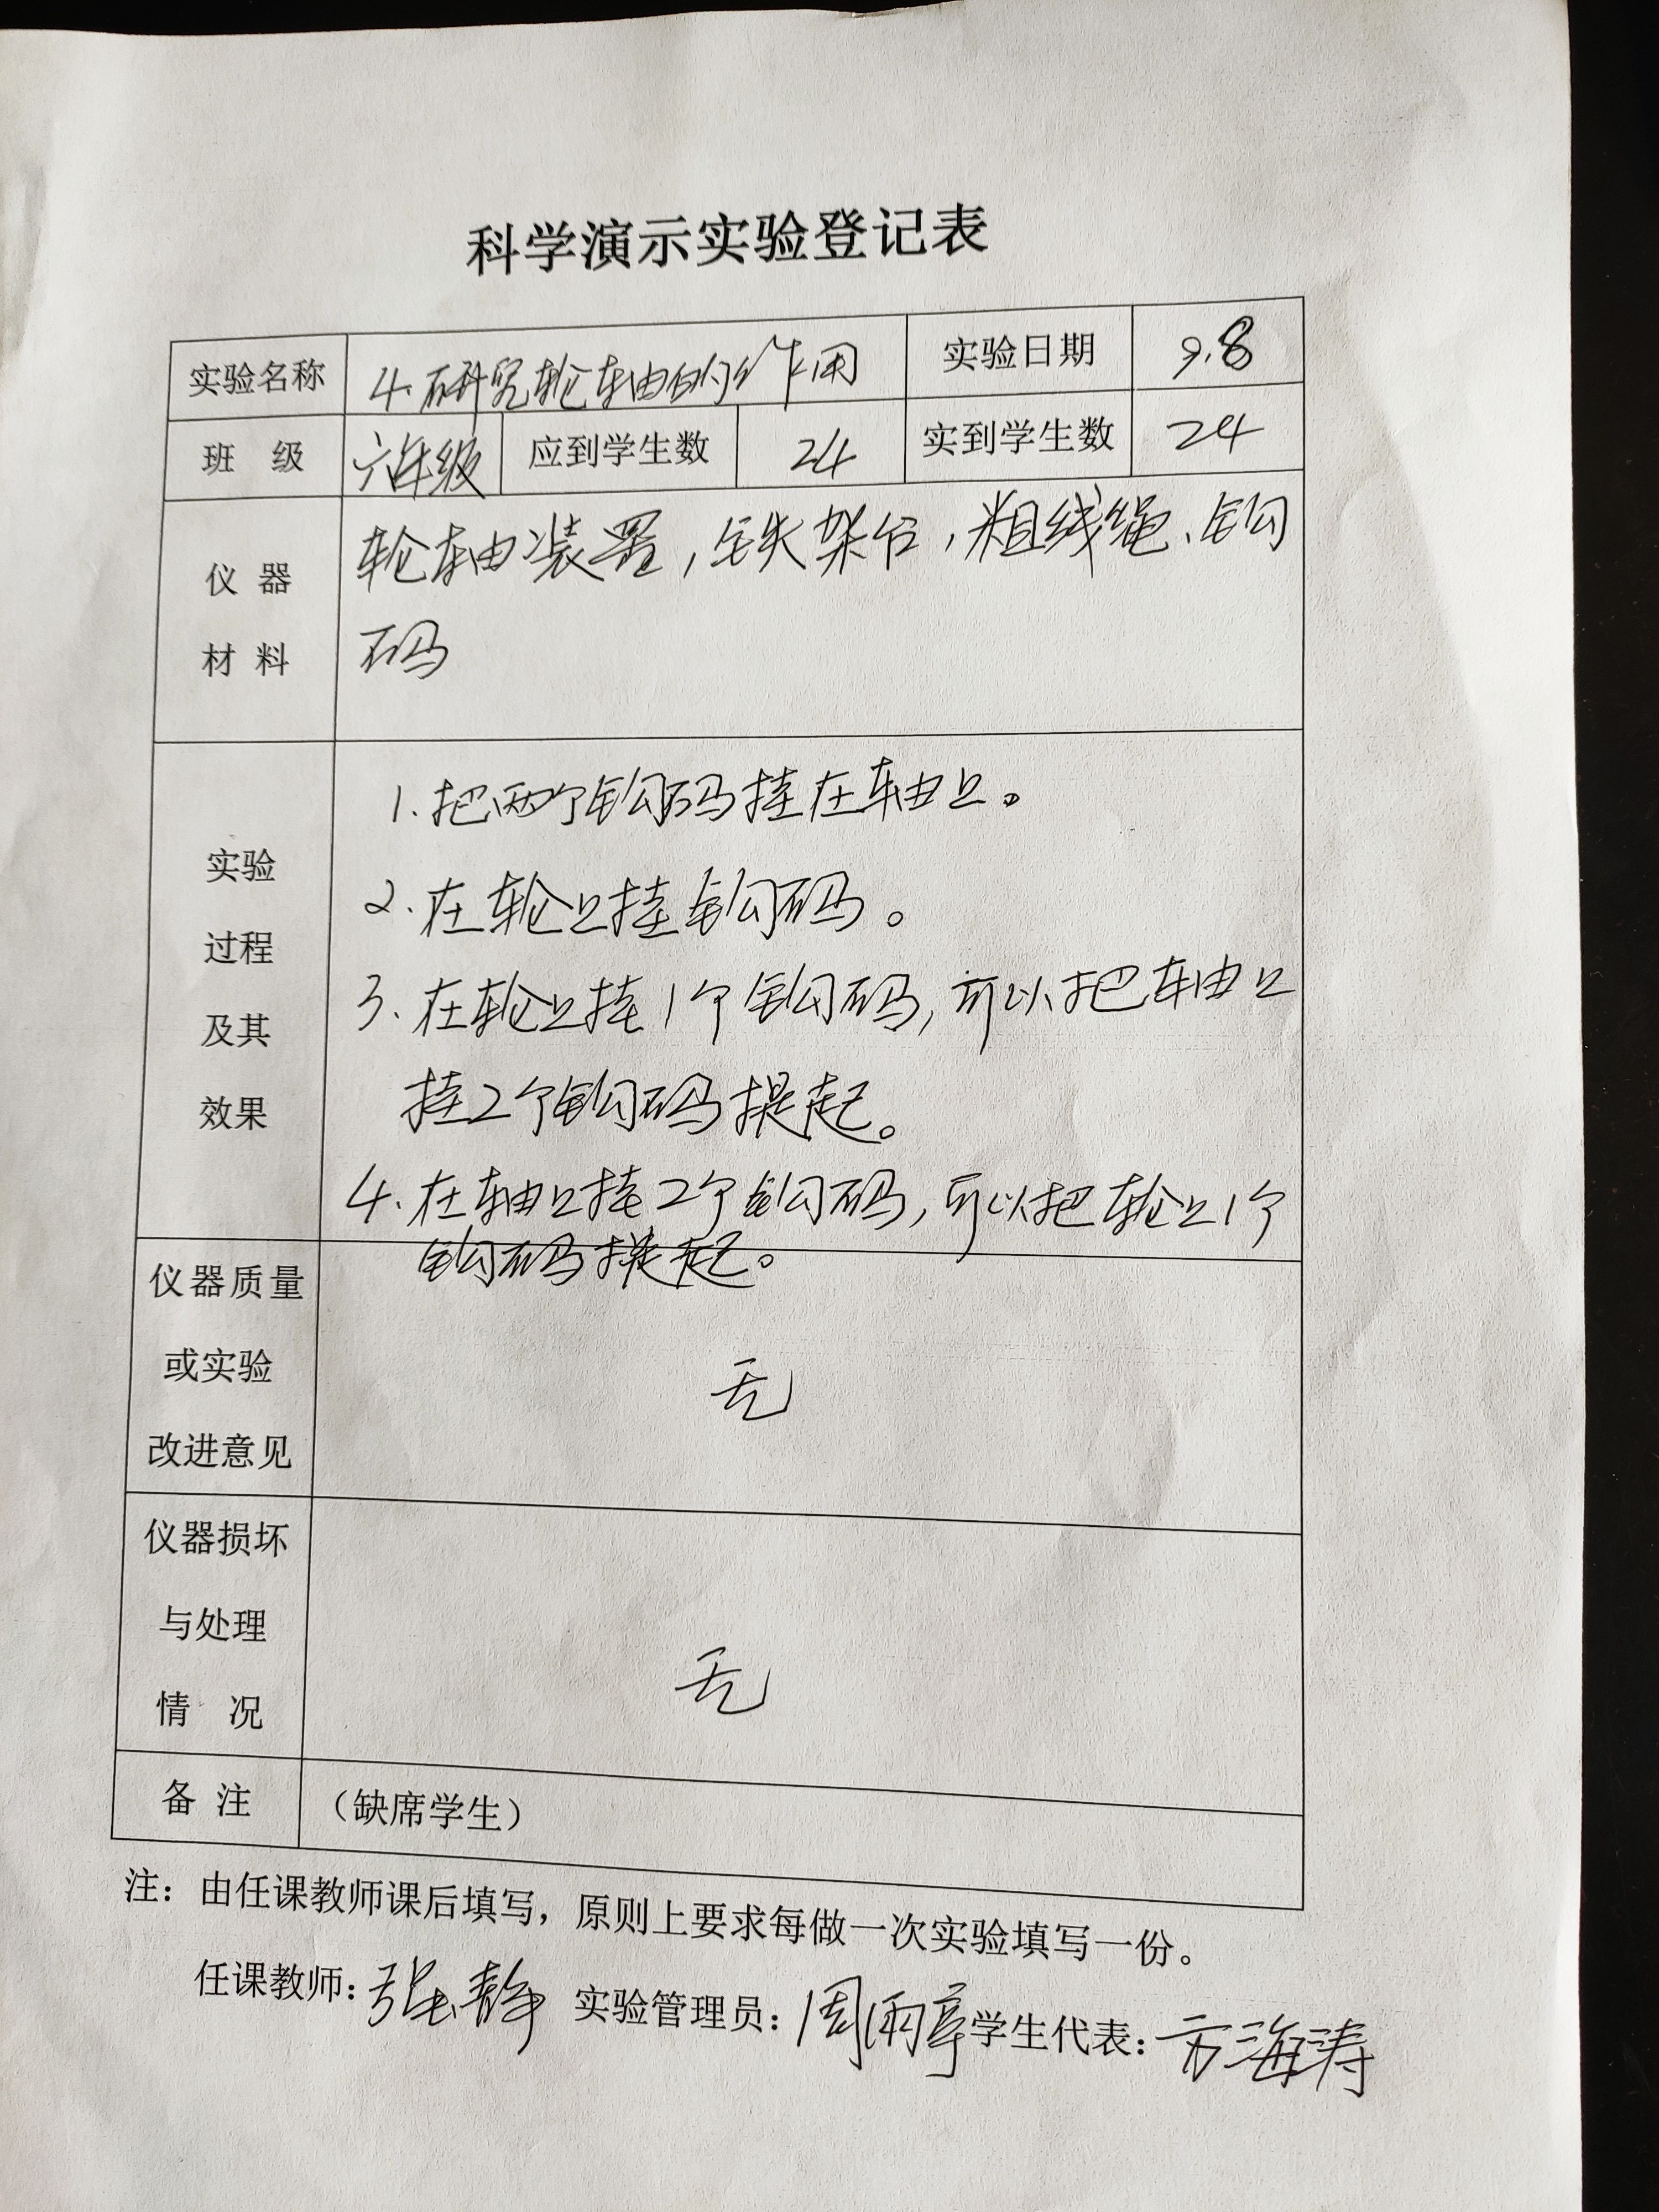 科学演示实验登记表
实验名称 4.研究轮轴的作用 实验日期 9.8
班 级 六年级 应到学生数 24 实到学生数 24
仪 器
材 料
轮轴装置,铁架台,粗线绳、钩
码
实验
过程
及其
效果
1.把两个钩码挂在轴上。
2.在轮上挂钩码。
3.在轮上挂1个钩码,可以把轴上
挂2个钩码提起。
4.在轴上挂2个钩码,可以把轮上1个
钩码提起。
仪器质量
或实验
改进意见
无
仪器损坏
与处理
情 况
无
备 注 (缺席学生)
注:由任课教师课后填写,原则上要求每做一次实验填写一份。
任课教师:张静 实验管理员:周雨亭 学生代表:方海涛